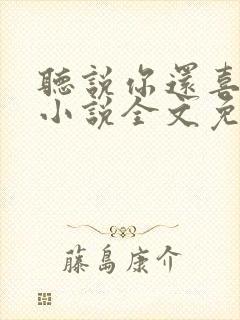 聽說你還喜
小說全文免
藤島康介